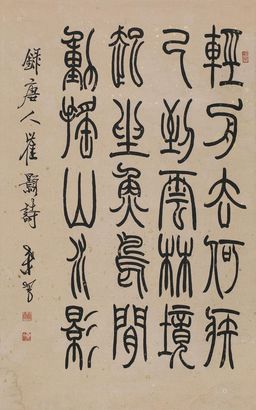 輕舟去何疾
已到雲林境
起坐魚鳥間
動搖山水影
錄唐人崔顥詩